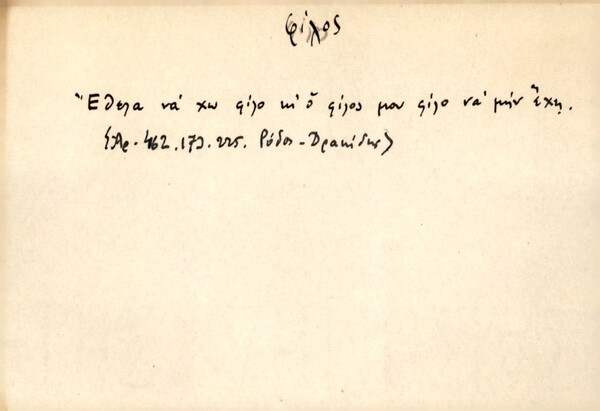 φίλος
Ἤθελα νά χω φίλο κι ὁ φίλος μου φίλο νά μήν ἔχῃ.
(Ἀρ. 462. 173. 225. Ρόδος - Δρακίδης)